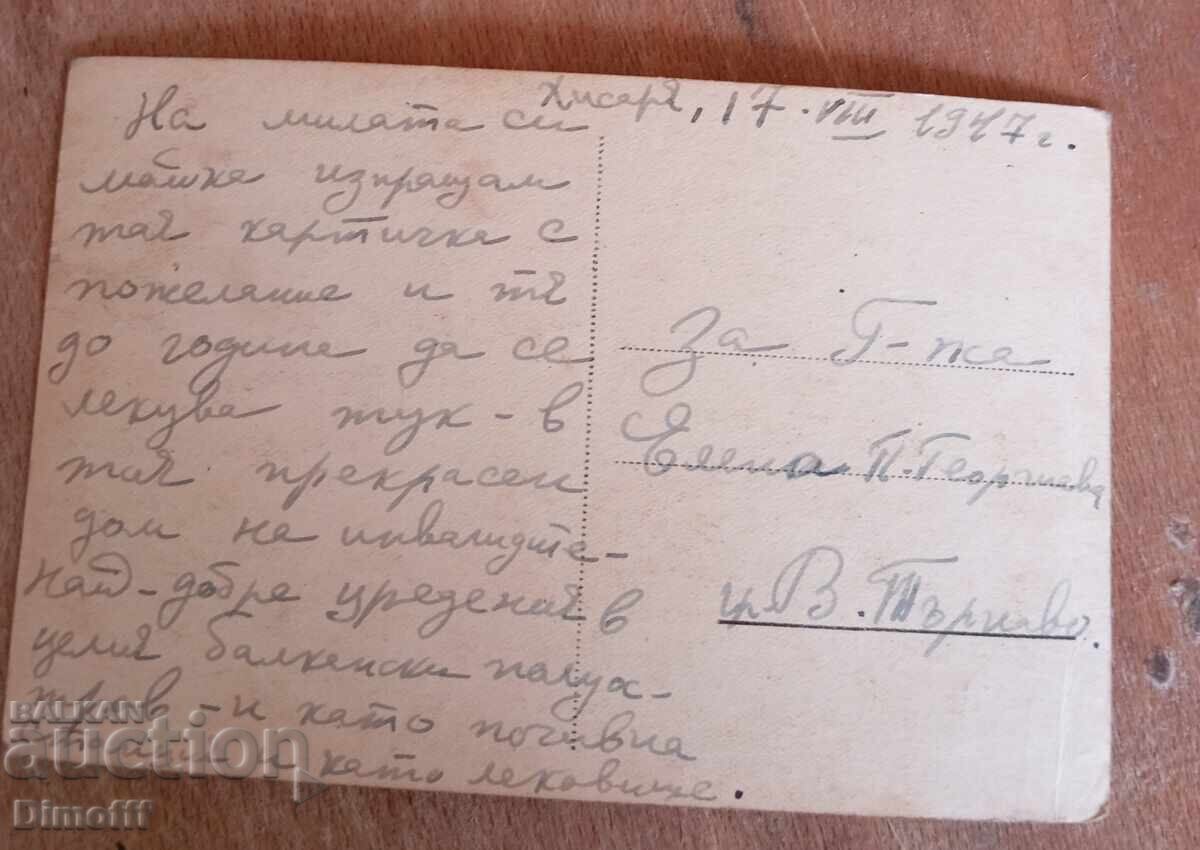 Хисаря, 17. VIII 1947 г.
На милата си
майка изпращам
тая картичка с
пожелание и тя
до година да се
лекува тук - в
тоя прекрасен
дом на инвалидите -
най-добре уредения в
целия балкански полуос-
тров - и като почивна
и като лековище.
За Г-жа
Елена П. Георгиева
гр. В. Търново.
BALKAN
auction
Dimofff